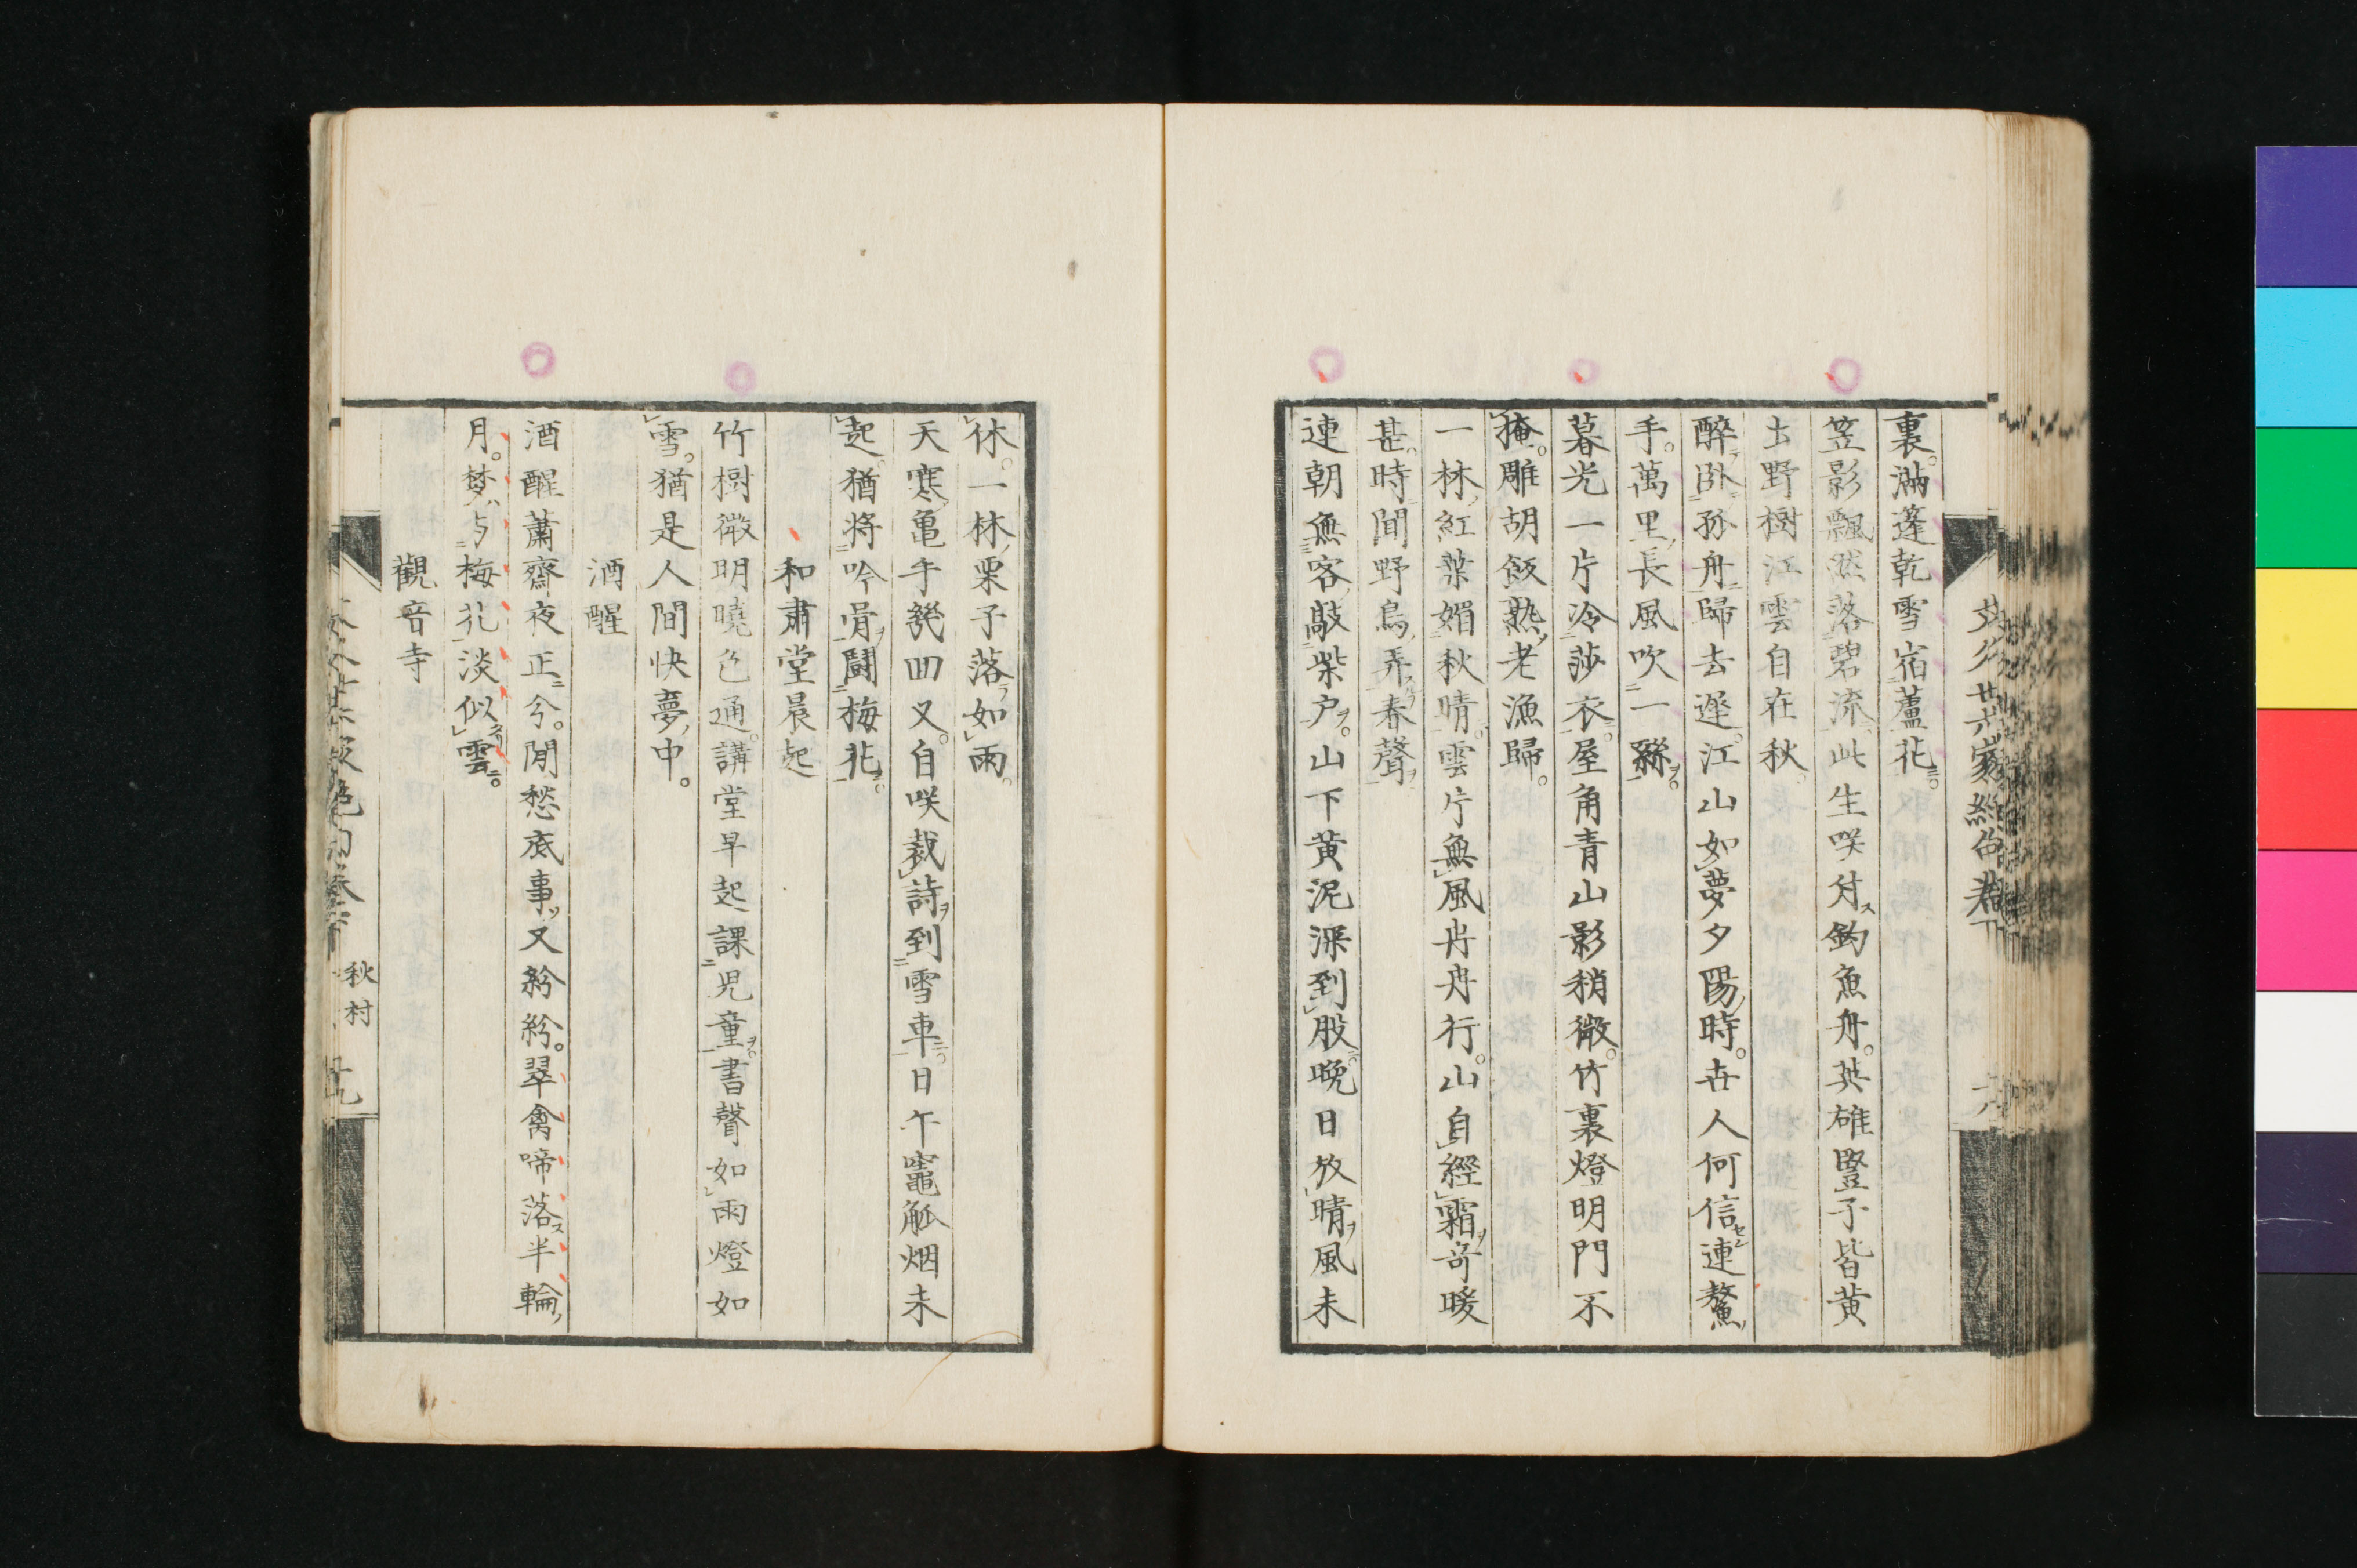 裏。滿蓬乾雪宿蘆花。
笠影飄然落碧流。此生咲付釣魚舟。英雄豎子皆黄
土野樹江雲自在秋。
醉臥孤舟歸去遲。江山如夢夕陽時。世人何信連鰲
手。萬里長風吹一絲。
暮光一片冷莎衣。屋角青山影稍微。竹裏燈明門不
掩。雕胡飯熟老漁歸。
一林紅葉媚秋晴。雲片無風片舟行。山自經霜奇暖
甚。時聞野鳥弄春聲
連朝無客敲柴戸。山下黄泥深到股。晩日放晴風未
休。一林栗子落如雨。
天寒亀手幾回又。自咲裁詩到雪車。日午竈觚烟未
起。猶將吟骨鬪梅花。
和肅堂晨起
竹樹微明曉色通。講堂早起課児童。書聲如雨燈如
雪。猶是人間快夢中。
酒醒
酒醒蕭齋夜正今。閒愁底事又紛紛。翠禽啼落半輪
月。梦与梅花淡似雲。
觀音寺
秋村